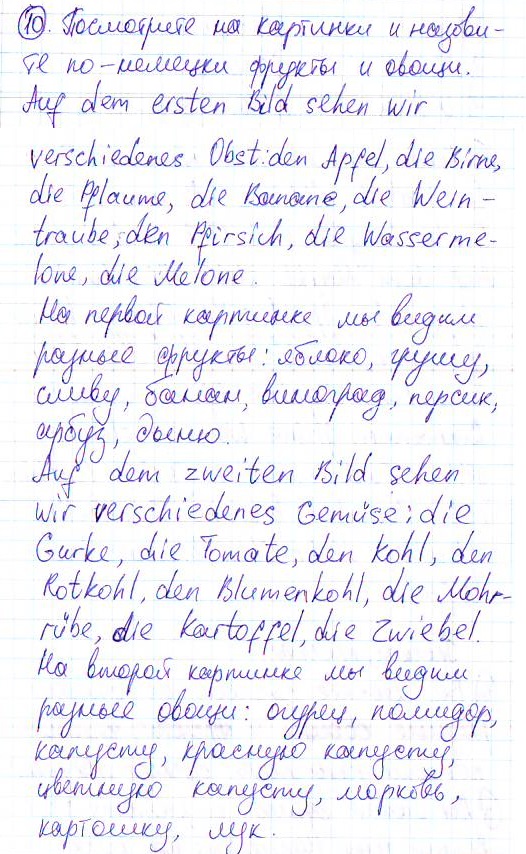 10. Посмотрите на картинки и назови-
те по-немецки фрукты и овощи.
Auf dem ersten Bild sehen wir
verschiedenes Obst: den Apfel, die Birne,
die Pflaume, die Banane, die Wein-
traube, den Pfirsich, die Wasserme-
lone, die Melone.
На первой картинке мы видим
разные фрукты: яблоко, грушу,
сливу, банан, виноград, персик,
арбуз, дыню.
Auf dem zweiten Bild sehen
wir verschiedenes Gemüse: die
Gurke, die Tomate, den Kohl, den
Rotkohl, den Blumenkohl, die Mohr-
rübe, die Kartoffel, die Zwiebel.
На второй картинке мы видим
разные овощи: огурец, помидор,
капусту, красную капусту,
цветную капусту, морковь,
картошку, лук.